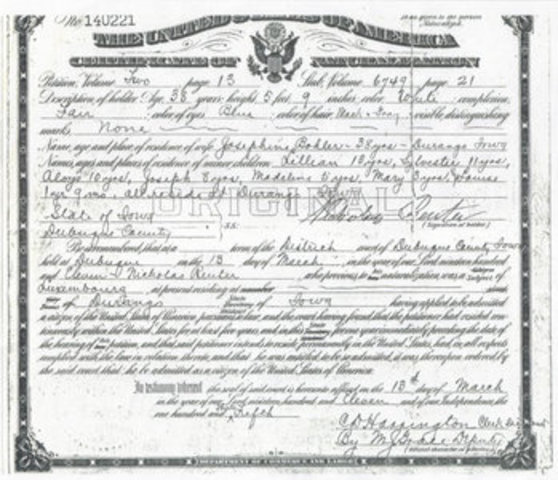 No. 140221
To be given to the person Naturalized.
THE UNITED STATES OF AMERICA
CERTIFICATE OF NATURALIZATION
Petition, Volume Two page 13 Stub, Volume 6749 page 21
Description of holder: Age, 38 years; height, 5 feet 9 inches; color, White; complexion,
Fair; color of eyes, Blue; color of hair, Black & Gray; visible distinguishing
marks, None
Name, age and place of residence of wife, Josephine Bohler - 38 yrs - Durango Iowa
Names, ages and places of residence of minor children, Lillian 13 yrs, Sylvester 11 yrs,
Aloys 10 yrs, Joseph 8 yrs, Madeline 5 yrs, Mary 3 yrs, Louise
1 yr 9 mo, all reside at Durango Iowa
ORIGINAL
State of Iowa
Dubuque County S.S.
Nicholas Reuter
(Signature of holder)
Be it remembered, that at a term of the District court of Dubuque County Iowa
held at Dubuque on the 13 day of March in the year of our Lord nineteen hundred
and Eleven Nicholas Reuter who previous to his naturalization was a Subject of
Luxembourg at present residing at number street
of Durango of Iowa having applied to be admitted
a citizen of the United States of America pursuant to law, and the court having found that the petitioner had resided con-
tinuously within the United States for at least five years, and in this for one year immediately preceding the date of
the hearing of his petition, and that said petitioner intends to reside permanently in the United States, had in all respects
complied with the law in relation thereto, and that he was entitled to be so admitted, it was thereupon ordered by
the said court that he be admitted as a citizen of the United States of America.
In testimony whereof the seal of said court is hereunto affixed on the 13th day of March
in the year of our Lord nineteen hundred and Eleven and of our Independence the
one hundred and Thirty Fifth
Clerk
By Deputy
DEPARTMENT OF COMMERCE AND LABOR